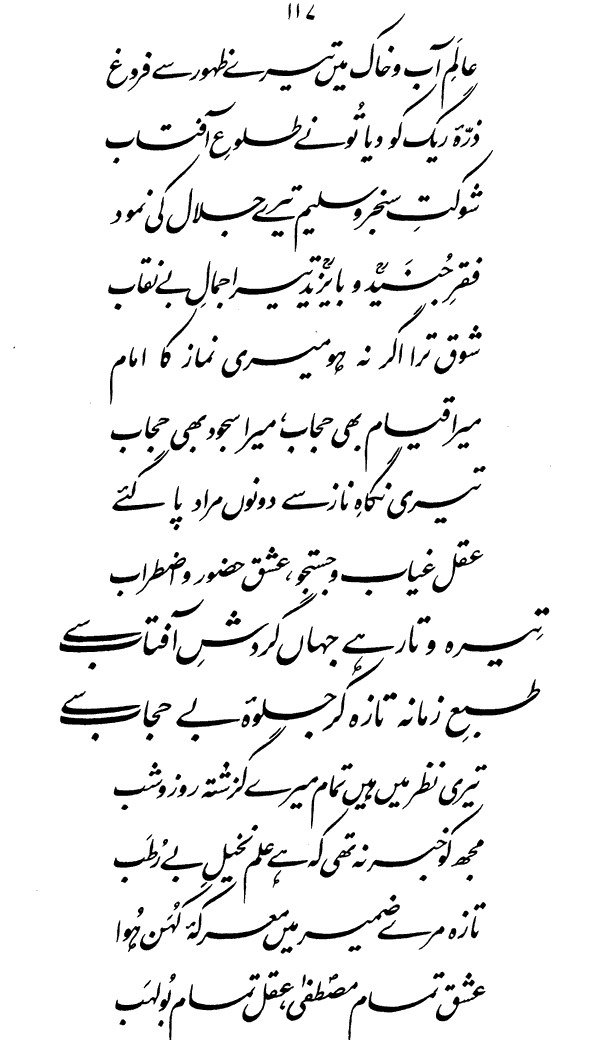 ۱۱۷
عالَمِ آب و خاک میں تیرے ظہور سے فروغ
ذرّۂ ریگ کو دیا تُو نے طلوعِ آفتاب
شوکتِ سنجر و سلیم تیرے جلال کی نمود
فقرِ جُنیدؒ و بایزیدؒ تیرا جمالِ بے نقاب
شوق ترا اگر نہ ہو میری نماز کا امام
میرا قیام بھی حجاب، میرا سجود بھی حجاب
تیری نگاہِ ناز سے دونوں مراد پا گئے
عقل غیاب و جستجو، عشق حضور و اضطراب
تِیرہ و تار ہے جہاں گردشِ آفتاب سے
طبعِ زمانہ تازہ کر جلوۂ بے حجاب سے
تیری نظر میں ہیں تمام میرے گزشتہ روز و شب
مجھ کو خبر نہ تھی کہ ہے علم نخیلِ بے رُطَب
تازہ مرے ضمیر میں معرکۂ کُہَن ہُوا
عشق تمام مصطفیٰؐ، عقل تمام بُولہَب